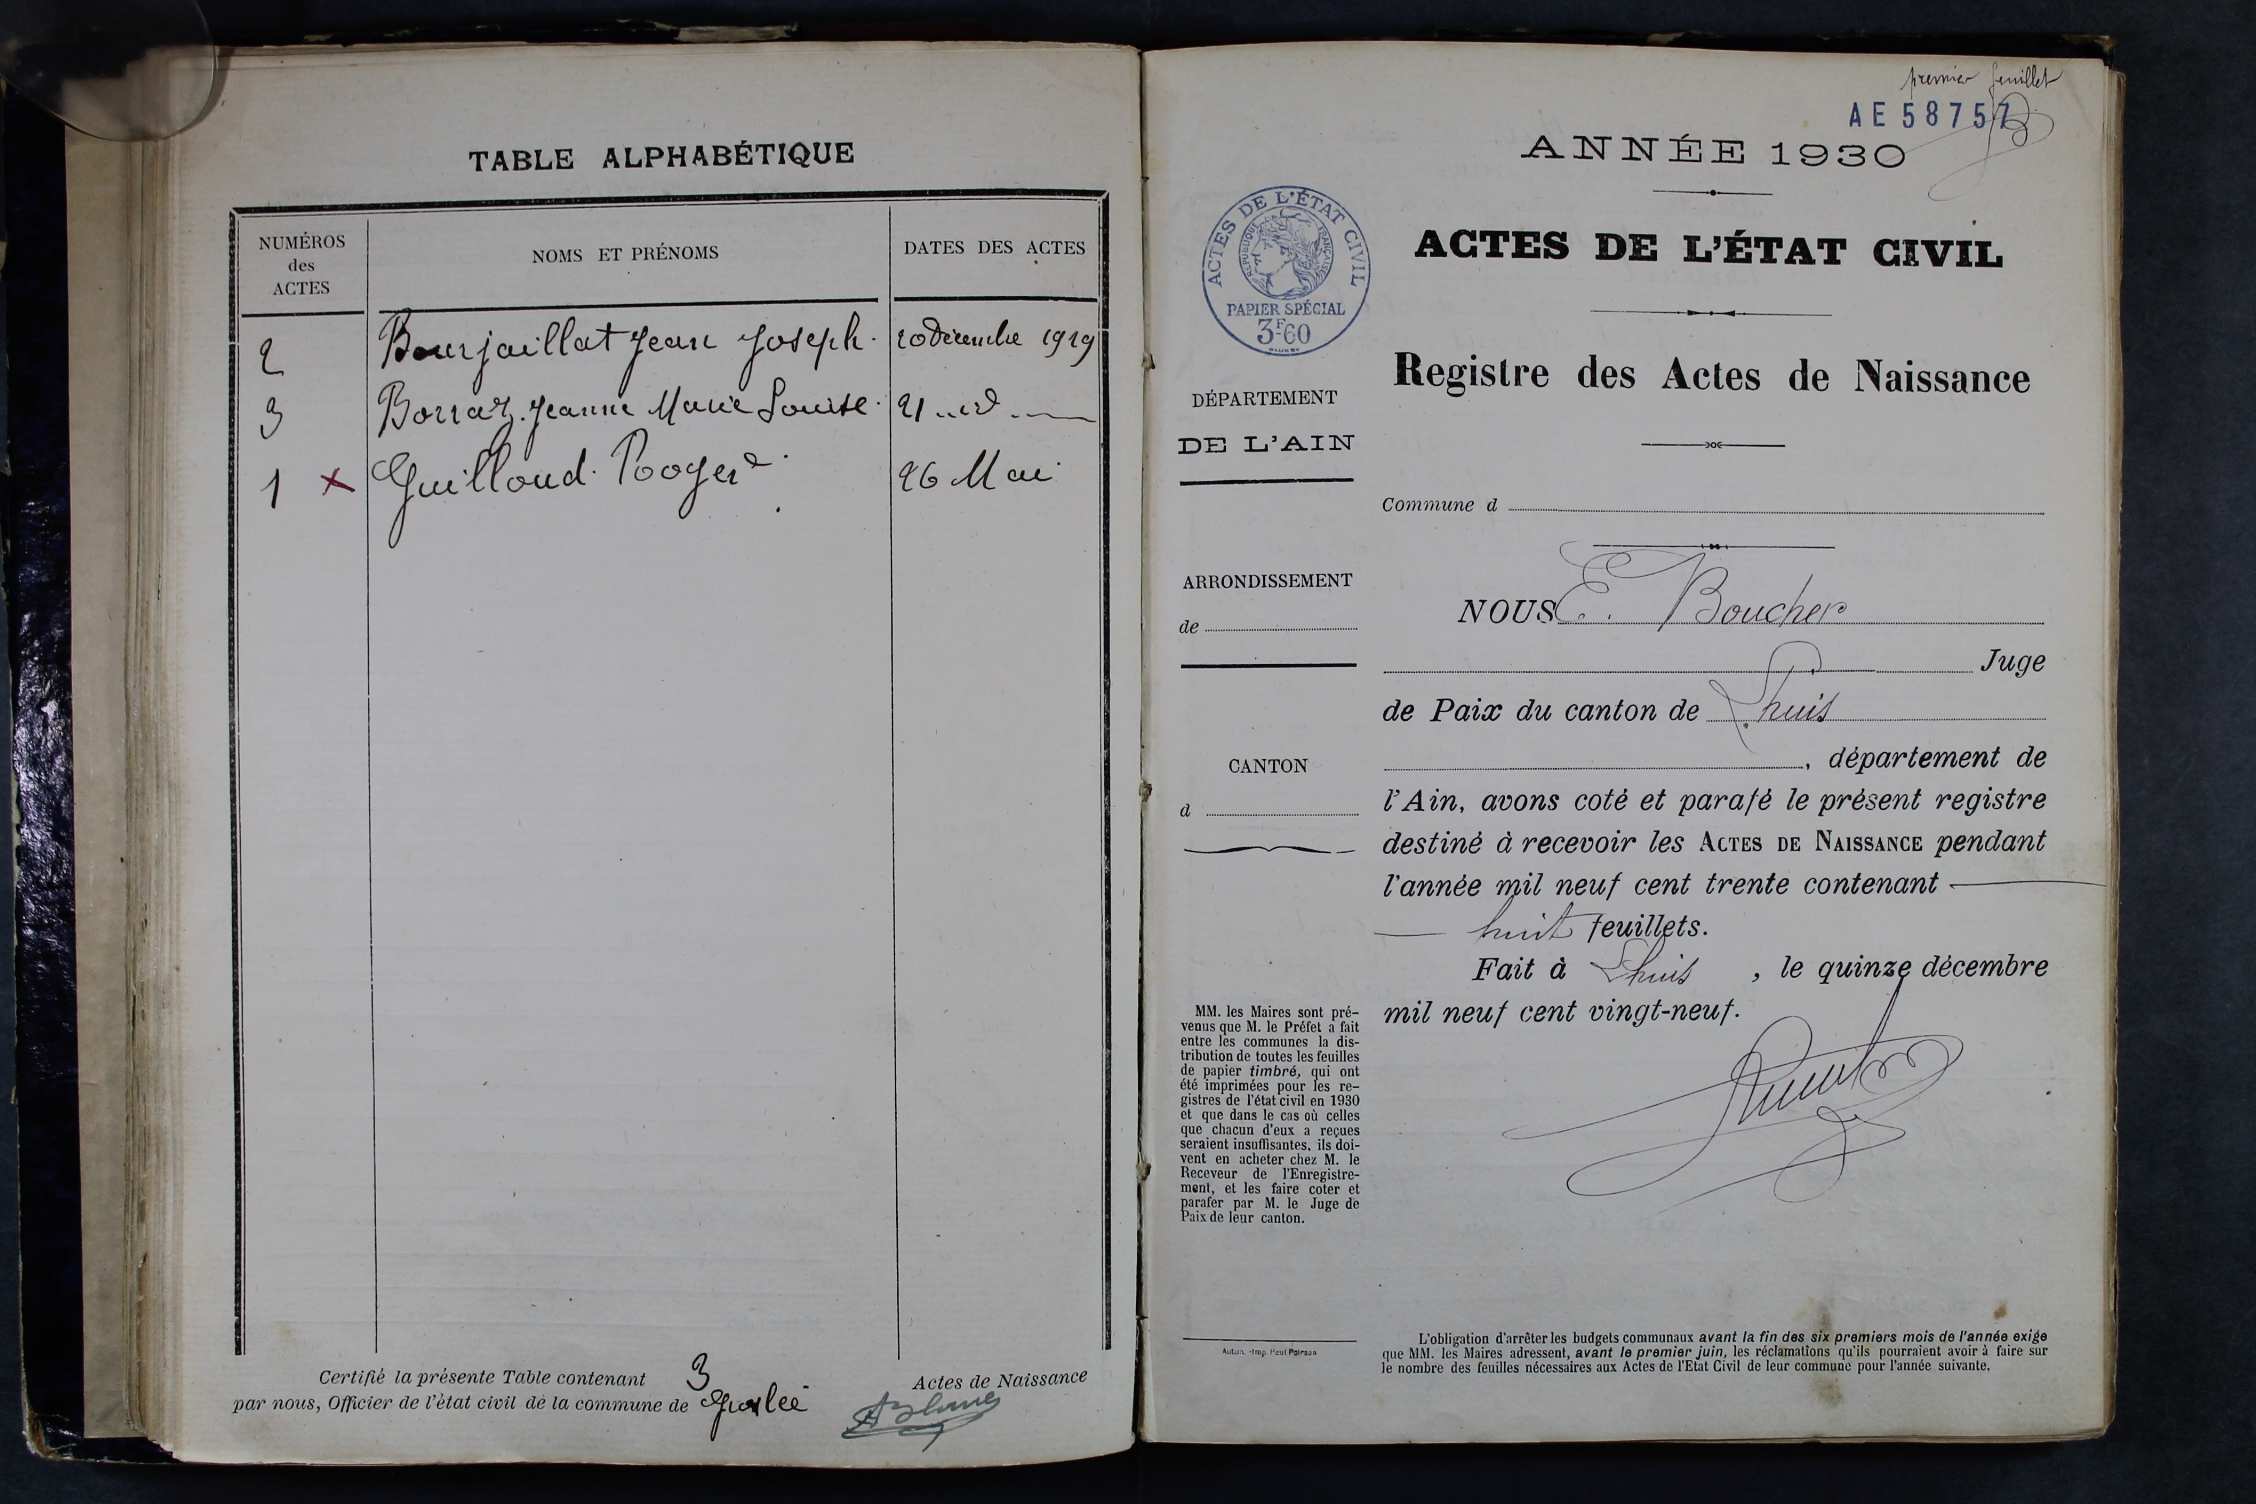 TABLE ALPHABÉTIQUE
NUMÉROS
des
ACTES
NOMS ET PRÉNOMS
DATES DES ACTES
2 Bourjaillat Jean Joseph. 20 décembre 1929
3 Borraz Jeanne Marie Louise. 21 id
1 x Guilloud Roger 26 Mai
Certifié la présente Table contenant 3 Actes de Naissance
par nous, Officier de l'état civil de la commune de
premier feuillet
AE 58757
ANNÉE 1930
ACTES DE L'ÉTAT CIVIL
RÉPUBLIQUE FRANÇAISE
PAPIER SPÉCIAL
3F60
ACTES DE L'ÉTAT CIVIL
Registre des Actes de Naissance
DÉPARTEMENT
DE L'AIN
ARRONDISSEMENT
de
CANTON
d
MM. les Maires sont pré-
venus que M. le Préfet a fait
entre les communes la dis-
tribution de toutes les feuilles
de papier timbré, qui ont
été imprimées pour les re-
gistres de l'état civil en 1930
et que dans le cas où celles
que chacun d'eux a reçues
seraient insuffisantes, ils doi-
vent en acheter chez M. le
Receveur de l'Enregistre-
ment, et les faire coter et
parafer par M. le Juge de
Paix de leur canton.
Autun. - Imp. Paul Poirson
Commune d
NOUS E. Boucher
Juge
de Paix du canton de Lhuis
, département de
l'Ain, avons coté et parafé le présent registre
destiné à recevoir les ACTES DE NAISSANCE pendant
l'année mil neuf cent trente contenant
huit feuillets.
Fait à Lhuis , le quinze décembre
mil neuf cent vingt-neuf.
L'obligation d'arrêter les budgets communaux avant la fin des six premiers mois de l'année exige
que MM. les Maires adressent, avant le premier juin, les réclamations qu'ils pourraient avoir à faire sur
le nombre des feuilles nécessaires aux Actes de l'Etat Civil de leur commune pour l'année suivante.